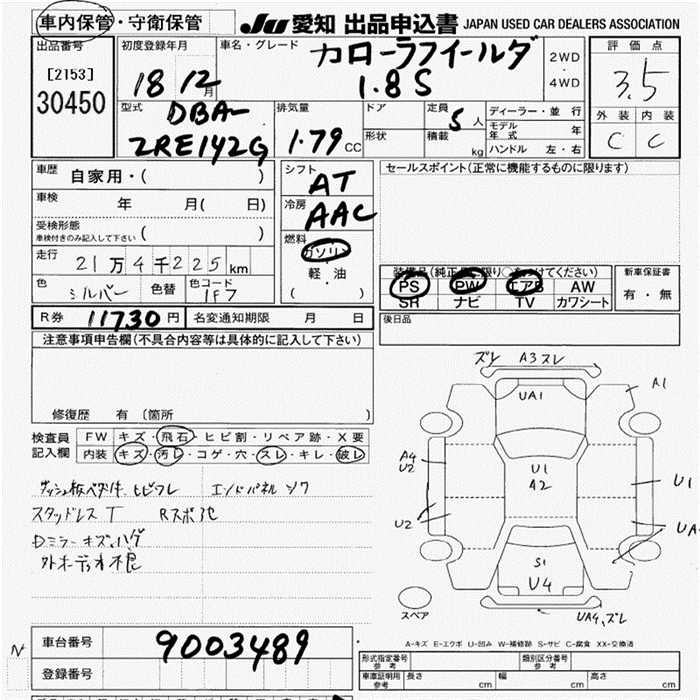 車内保管・守衛保管
JU 愛知 出品申込書 JAPAN USED CAR DEALERS ASSOCIATION
出品番号
[2153]
30450
初度登録年月
18 12 月
車名・グレード
カローラフィールダ
1.8S
2WD
・
4WD
評価点
3.5
外装 内装
C C
型式
DBA-
ZRE142G
排気量
1.79 CC
ドア
形状
定員 5 人
積載 kg
ディーラー・並行
モデル年式 年
ハンドル 左・右
車歴 自家用・( )
車検 年 月( 日)
受検形態
車検付きのみ記入して下さい ( )
走行 21万4千225km
色 シルバー 色替 色コード 1F7
シフト AT
冷房 AAC
燃料 ガソリン
軽・油
( )
セールスポイント(正常に機能するものに限ります)
装備品(純正品に限り○をつけてください)
PS PW エアB AW
SR ナビ TV カワシート
新車保証書
有・無
R券 11730円 名変通知期限 月 日
後日品
注意事項申告欄(不具合内容等は具体的に記入して下さい)
修復歴 有 (箇所 )
検査員記入欄
FW キズ・飛石・ヒビ割・リペア跡・X要
内装 キズ・汚レ・コゲ・穴・スレ・キレ・破レ
エンドパネル シワ
スタッドレス T
Dミラーキズ・ハゲ
外オーディオ不良
ズレ A3スレ
A1
UA1
A4
U2
U1
A2
U1
U2
UA
S1
U4
UA4、ズレ
スペア
A-キズ E-エクボ U-凹み W-補修跡 S-サビ C-腐食 XX-交換済
N
車台番号 9003489
登録番号
形式指定番号 参考
類別区分番号 参考
車庫証明用 参考
長さ cm
幅 cm
高さ cm